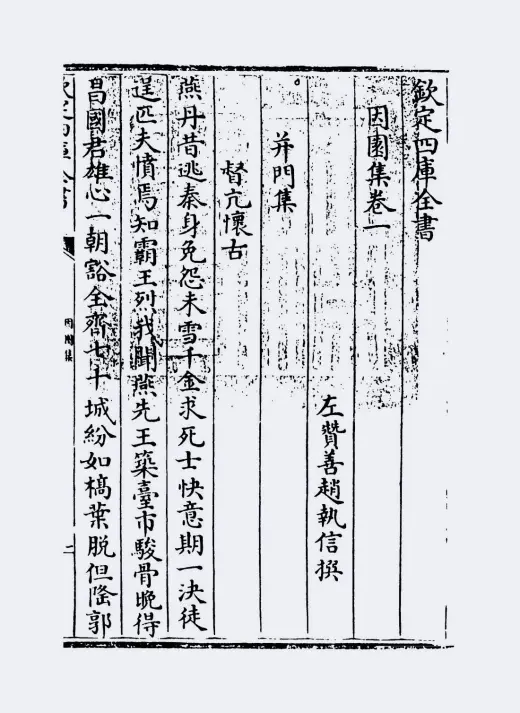 欽定四庫全書
因園集卷一
左贊善趙執信撰
并門集
督亢懷古
燕丹昔逃秦身免怨未雪千金求死士快意期一決徒
逞匹夫憤焉知霸王烈我聞燕先王築臺市駿骨晚得
昌國君雄心一朝豁全齊七十城紛如槁葉脫但隆郭
欽定四庫全書
因園集
二